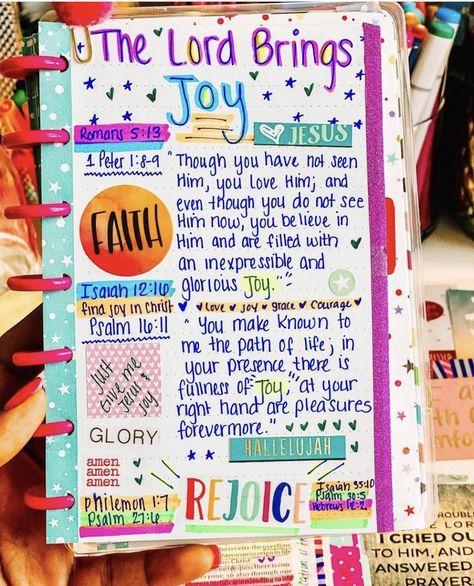 The Lord Brings
Joy
Romans 5:13
JESUS
1 Peter 1:8-9
"Though you have not seen
Him, you love Him; and
even though you do not see
Him now, you believe in
Him and are filled with
an inexpressible and
glorious Joy."
FAITH
Isaiah 12:16
find joy in Christ
Psalm 16:11
Love Joy grace Courage
"You make known to
me the path of life; in
your presence there is
fullness of "Joy," at your
right hand are pleasures
forevermore."
Just
Give me
Jesus &
Joy
GLORY
HALLELUJAH
amen
amen
amen
philemon 1:7
Psalm 27:6
REJOICE
Isaiah 35:10
Psalm 30:5
Hebrews 12:2
I CRIED
ANSWERED
PRAYER